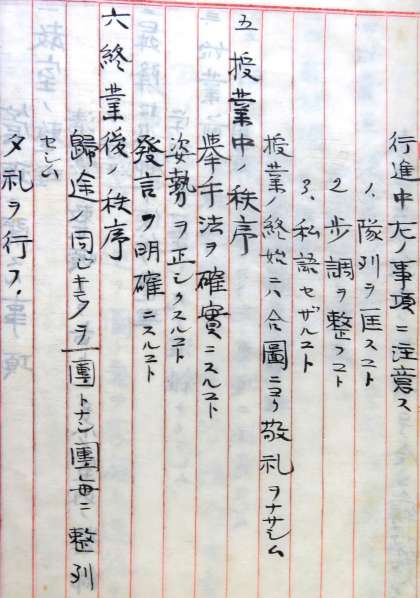 行進中左ノ事項ニ注意ス
1、隊列ヲ匡スコト
2 歩調ヲ整フコト
3、私語セザルコト
授業ノ終始ハ合圖ニヨリ敬礼ヲナサシム
五 授業中ノ秩序
挙手法ヲ確實ニスルコト
姿勢ヲ正シクスルコト
發言ヲ明確ニスルコト
六 終業後ノ秩序
歸途ノ同ジキモノヲ一團トナシ團毎ニ整列
セシム
夕礼ヲ行フ、